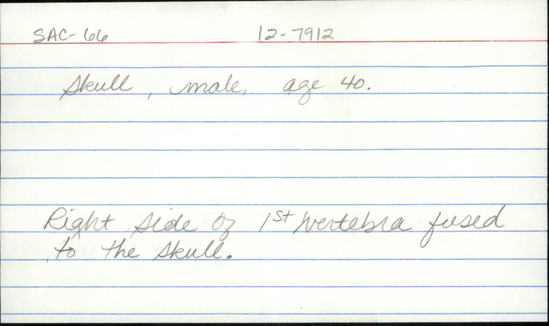 SAC-66 12-7912
Skull, male, age 40.
Right side of 1st vertebra fused
to the skull.